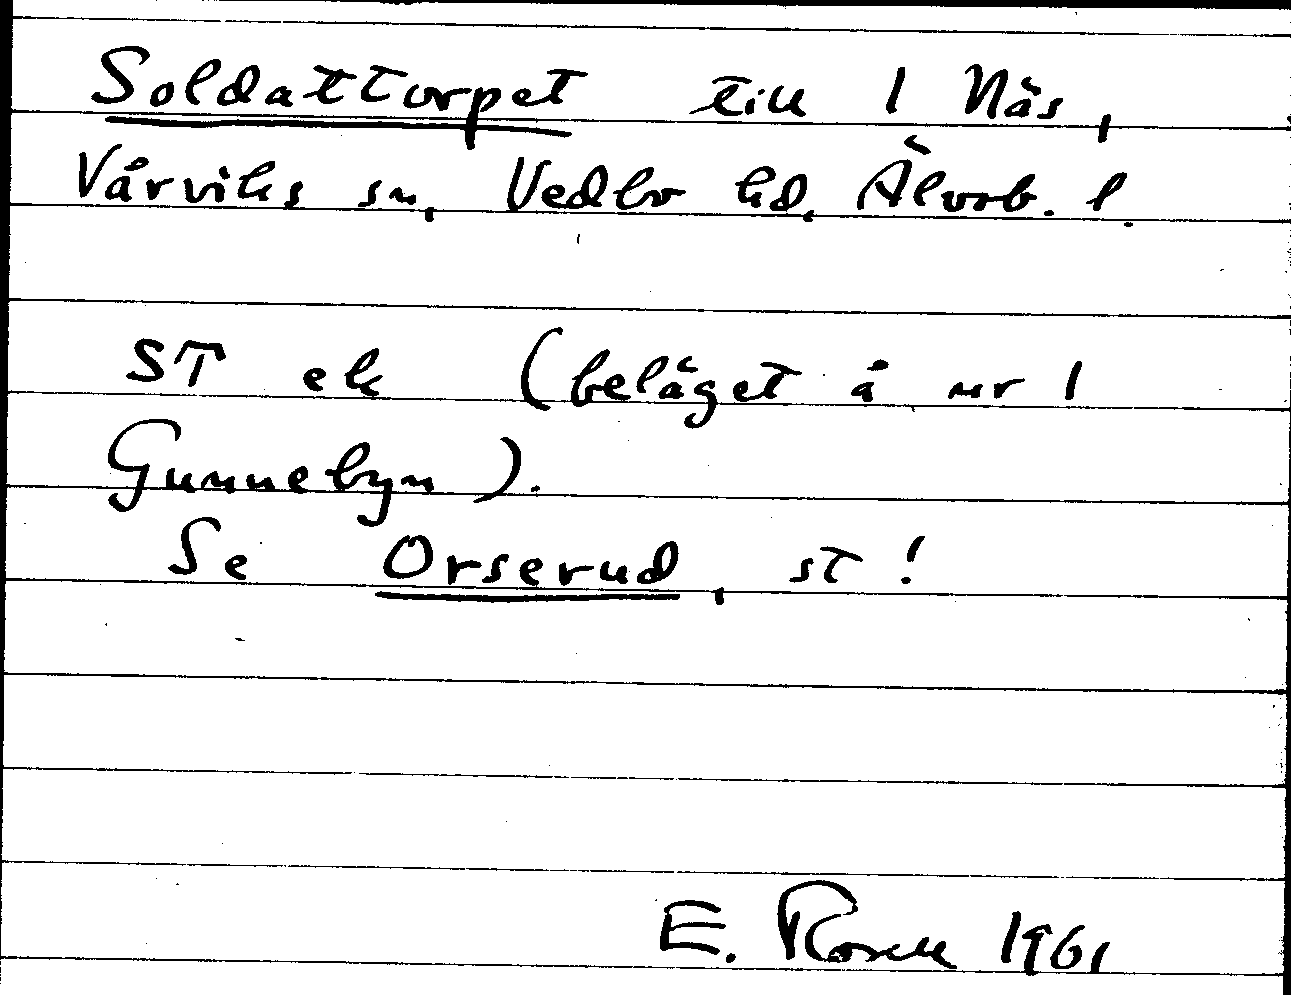 Soldattorpet till 1 Näs,
Vårviks sn, Vedbo hd, Älvsb. l.
ST ek (beläget å nr 1
Gunnebyn).
Se Orserud, st!
E. Rosell 1961